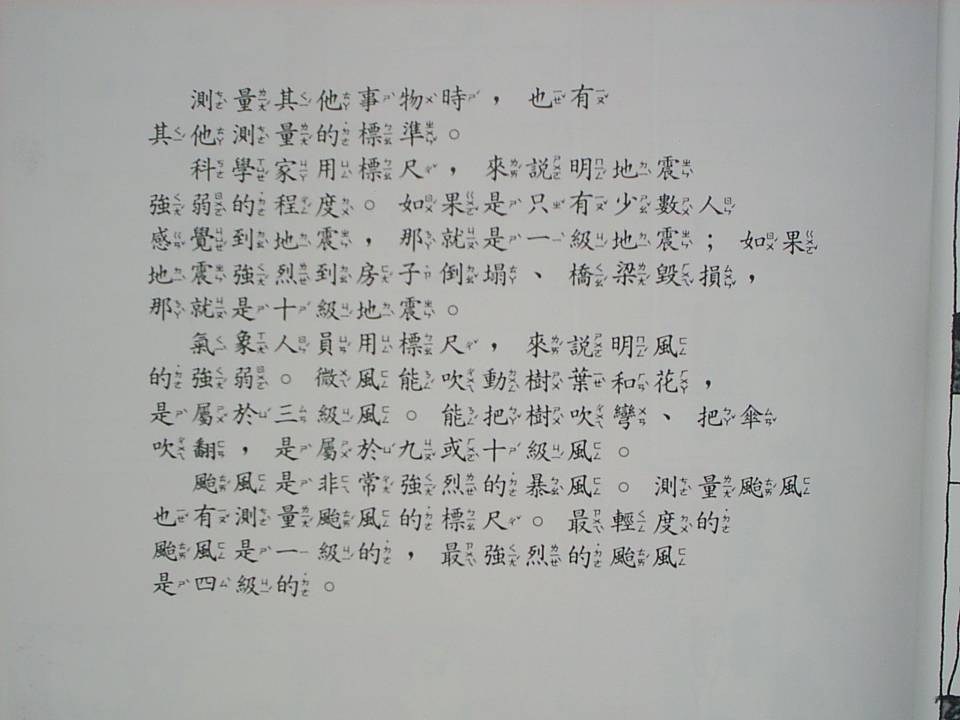 測量其他事物時，也有
其他測量的標準。
科學家用標尺，來説明地震
強弱的程度。如果是只有少數人
感覺到地震，那就是一級地震；如果
地震強烈到房子倒塌、橋梁毀損，
那就是十級地震。
氣象人員用標尺，來説明風
的強弱。微風能吹動樹葉和花，
是屬於三級風。能把樹吹彎、把傘
吹翻，是屬於九或十級風。
颱風是非常強烈的暴風。測量颱風
也有測量颱風的標尺。最輕度的
颱風是一級的，最強烈的颱風
是四級的。